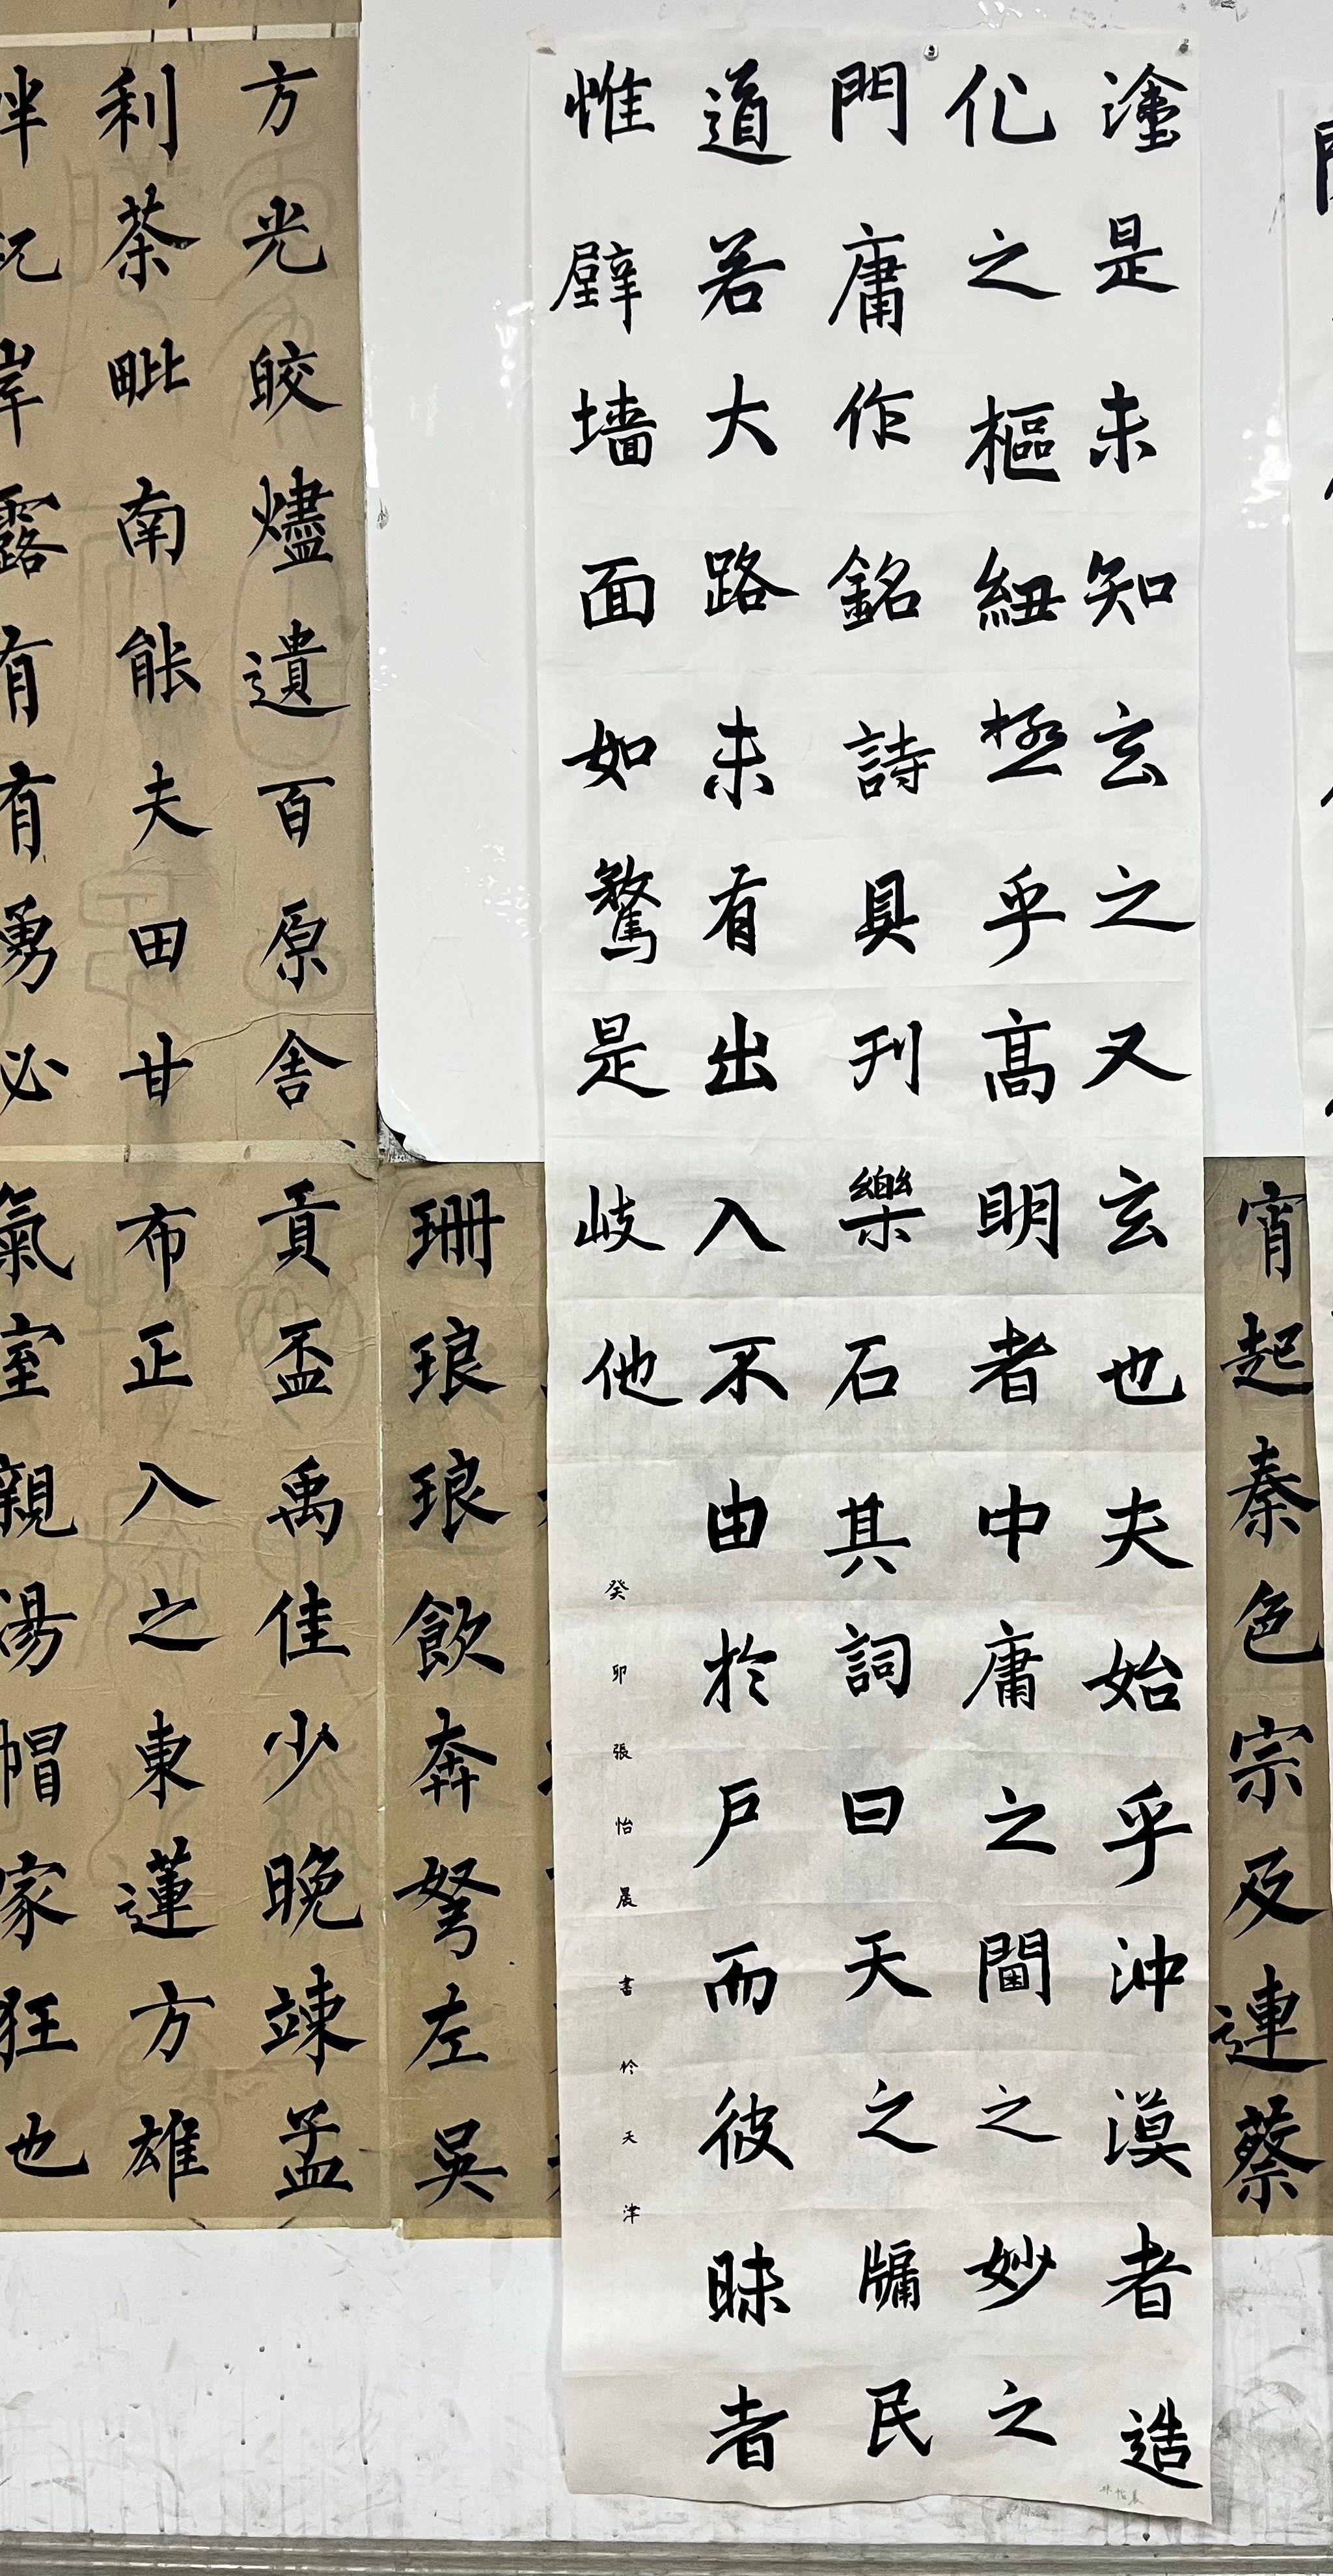 宵起秦色宗及連蔡
塗是未知玄之又玄也夫始乎沖漠者造
化之樞紐極乎高明者中庸之閫之妙之
門庸作銘詩具刊樂石其詞曰天之牖民
道若大路未有出入不由於戶而彼昧者
惟壁墙面如騖是岐他
癸卯張怡晨書於天津
方光皎燼遺百原舍
利茶毗南能夫田甘
岸露有有勇必
珊琅琅飲奔弩左吳
貢盃禹佳少晚竦孟
布正入之東蓮方雄
氣室親湯帽家狂也